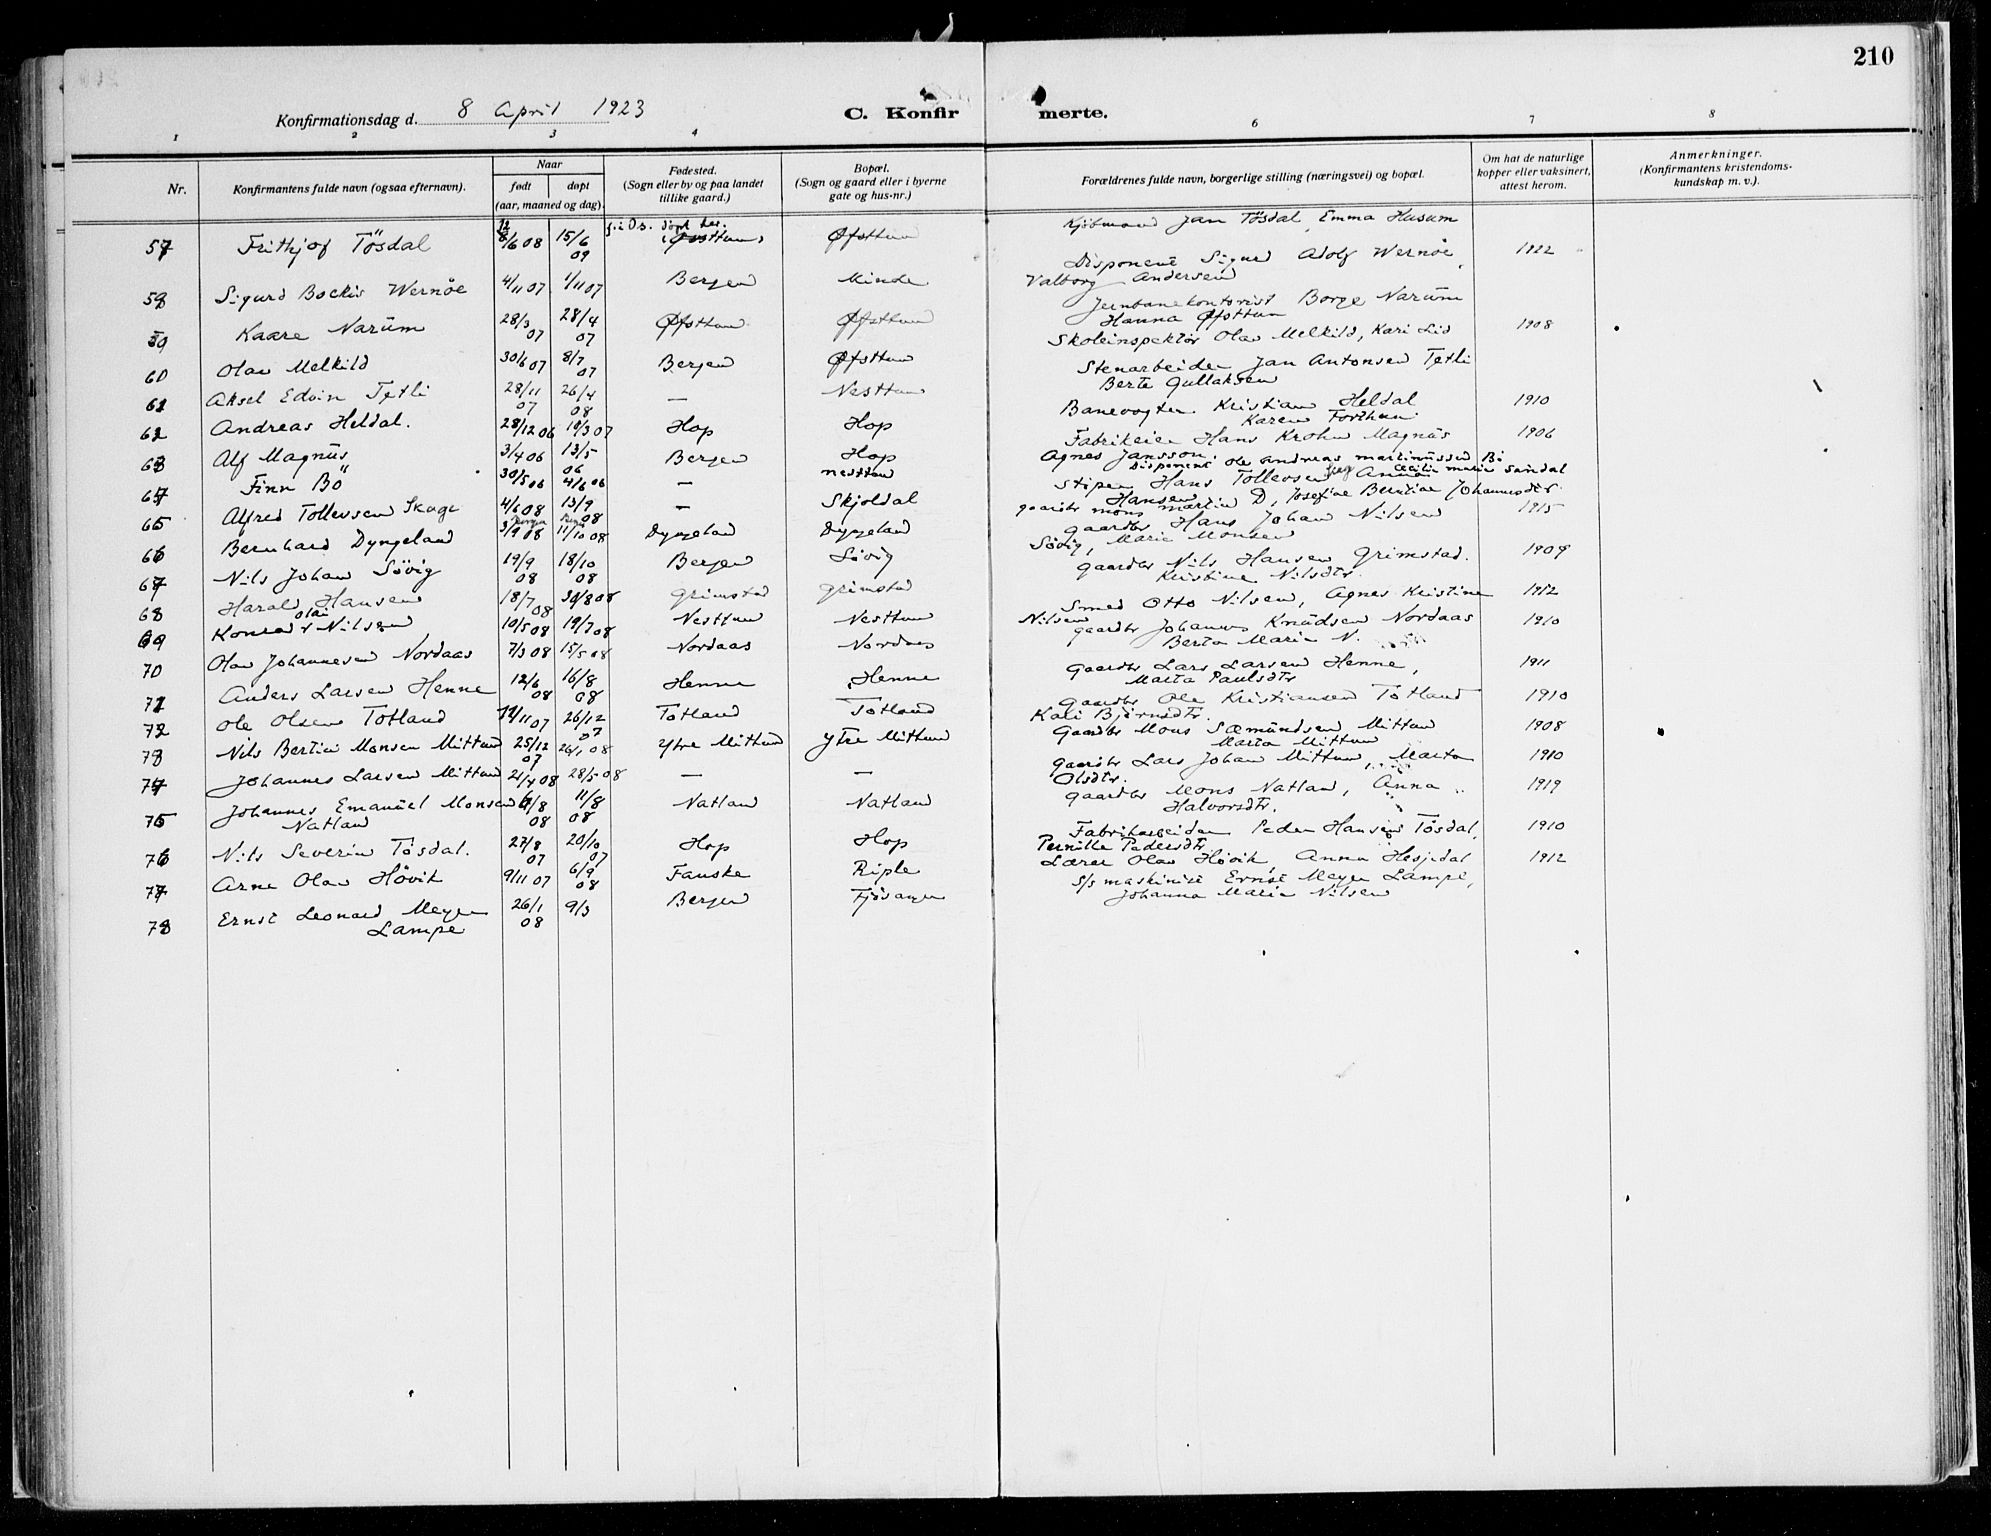 210
Konfirmationsdag d. 8 April 1923
C. Konfirmerte.
1 2 3 4 6 7 8
Nr. | Konfirmantens fulde navn (ogsaa efternavn). | Naar født døpt (aar, maaned og dag). | Fødested. (Sogn eller by og paa landet tillike gaard.) | Bopæl. (Sogn og gaard eller i byerne gate og hus-nr.) | Forældrenes fulde navn, borgerlige stilling (næringsvei) og bopæl. | Om hat de naturlige kopper eller vaksinert, attest herom. | Anmerkninger. (Konfirmantens kristendoms-kundskap m. v.).
57 Frithjof Tösdal 8/6 08 15/6 09 Øfsttun Øfsttun Kjöbmand Jan Tösdal, Emma Husum
58 Sigurd Bockis Wernöe 4/11 07 1/11 07 Bergen Minde Disponent Sigurd Adolf Wernöe, Valborg Andersen 1922
59 Kaare Narüm 28/3 07 28/4 07 Øfsttun Øfsttun Jernbanekontorist Borge Narüm Hanna Øfsttun
60 Olav Melkild 30/6 07 8/7 07 Bergen Øfsttun Skoleinspektör Olav Melkild, Kari Lid 1908
61 Aksel Edvin Tetli 28/11 07 26/4 08 — Nesttun Stenarbeider Jan Antonsen Tetli Berte Gullaksen
62 Andreas Heldal. 28/12 06 10/3 07 Hop Hop Banevogter Kristian Heldal Karen Forthun 1910
63 Alf Magnüs 3/4 06 13/5 06 Bergen Hop Fabrikeier Hans Krohn Magnüs Agnes Jansson. 1906
64 Finn Bö 30/5 06 4/6 06 — Nesttun Disponent Ole Andreas Martinüssen Bö Cecilie Marie Sandal
65 Alfred Tollevsen Skage 4/6 08 13/9 08 — Skjoldal Stiper Hans Tollevsen Anna Hansen
66 Bernhard Dyngeland 3/9 08 11/10 08 Dyngeland Dyngeland Gaardbr Mons Martin D, Josefine Bertine Johannesdtr. 1915
67 Nils Johan Sövig 19/9 08 18/10 08 Bergen Sövig Gaardbr Hans Johan Nilsen Sövig, Marie Monsen
68 Harald Hansen 18/7 08 30/8 08 Grimstad Grimstad Gaardbr Nils Hansen Grimstad. Kristine Nilsdtr. 1909
69 Konrad Olai Nilsen 10/5 08 19/7 08 Nesttun Nesttun Smed Otto Nilsen, Agnes Kristine Nilsen 1912
70 Olav Johannesen Nordaas 7/3 08 15/5 08 Nordaas Nordaas Gaardbr Johannes Knüdsen Nordaas Berta Maria N. 1910
71 Anders Larsen Henne 12/6 08 16/8 08 Henne Henne Gaardbr Lars Larsen Henne, Marta Paulsdtr 1911
72 Ole Olsen Totland 14/11 07 26/12 07 Totland Totland Gaardbr Ole Kristiansen Totland Kari Björnsdtr. 1910
73 Nils Bertin Monsen Mittun 25/12 07 26/1 08 Ytre Mittun Ytre Mittun Gaardbr Mons Sæmündsen Mittun Marta Mittun 1908
74 Johannes Larsen Mittun 21/4 08 28/5 08 — — Gaardbr Lars Johan Mittun, Marta Olsdtr. 1910
75 Johannes Emanüel Monsen Natland 4/8 08 11/8 08 Natland Natland Gaardbr Mons Natland, Anna Halvorsdtr. 1919
76 Nils Severin Tösdal. 27/8 07 20/10 07 Hop Hop Fabrikarbeider Peder Hansen Tösdal, Pernille Pedersdtr. 1910
77 Arne Olav Hövik 9/11 07 6/9 08 Fauske Riple Lærer Olav Hövik, Anna Hesjedal 1912
78 Ernst Leonard Meyer Lampe 26/1 08 9/3 Bergen Fjösanger S/s maskinist Ernst Meyer Lampe, Johanna Marie Nilsen